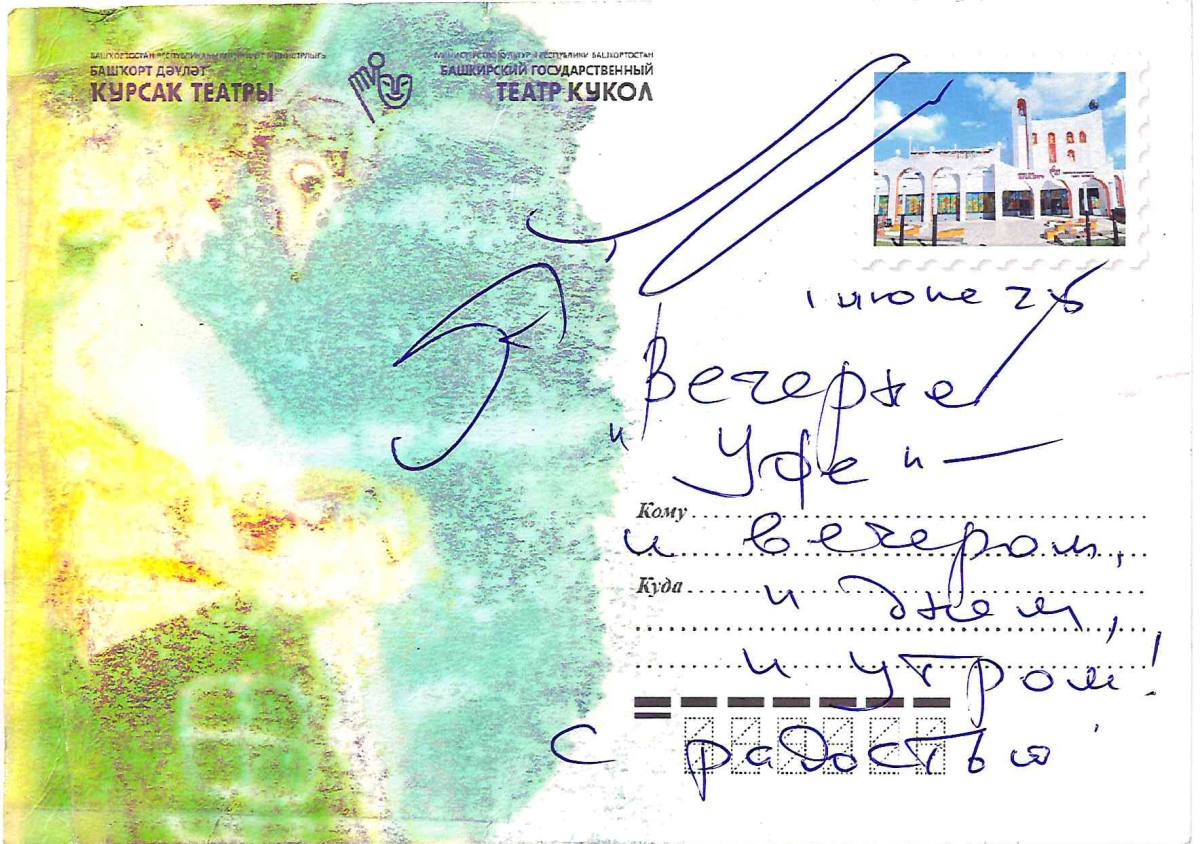 БАШҠОРТОСТАН РЕСПУБЛИКАҺЫ МӘҘӘНИӘТ МИНИСТРЛЫҒЫ
БАШҠОРТ ДӘҮЛӘТ
КУРСАК ТЕАТРЫ
МИНИСТЕРСТВО КУЛЬТУРЫ РЕСПУБЛИКИ БАШКОРТОСТАН
БАШКИРСКИЙ ГОСУДАРСТВЕННЫЙ
ТЕАТР КУКОЛ
1 июне
Вечерне
"Уфе" —
Кому
и вечером,
Куда
и днем,
и утром!
С радостью